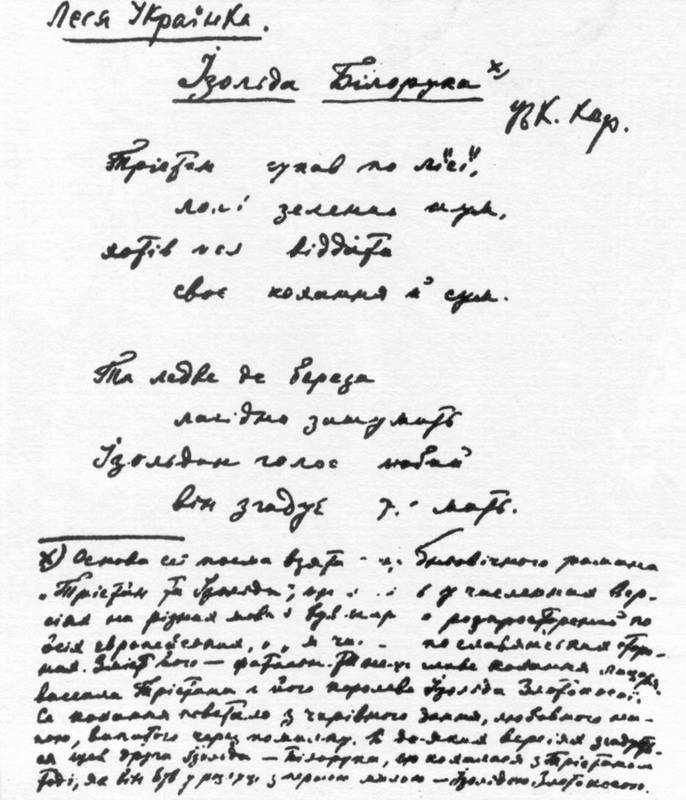 Леся Українка.
Ізольда Білорука x)
К. Кар.
Трістан блукав по лісі,
ловив зелений шум,
хотів він віддати
своє кохання й сум.
Та ледве де береза
лагідно зашумить
Ізольдин голос любий
він згадує мить.
x) Основа сеї поеми взята середньовічного романа
„Трістан та Ізольда", що в численних вер-
сіях на різних мовах був розпросторений по
всіх європейських, по слав'янських сторо-
нах. Зміст його — фатальне кохання лицаря
васала Трістана і його королеви Ізольди Злотокосої.
Се кохання повстало з чарівного дання, любовного на-
пою, випитого через помилку. В де-яких версіях згадуєть-
ся іще друга Ізольда — Білорука, що кохалася з Трістаном
тоді, як він був у розлуці з першою милою — Ізольдою Злотокосою.